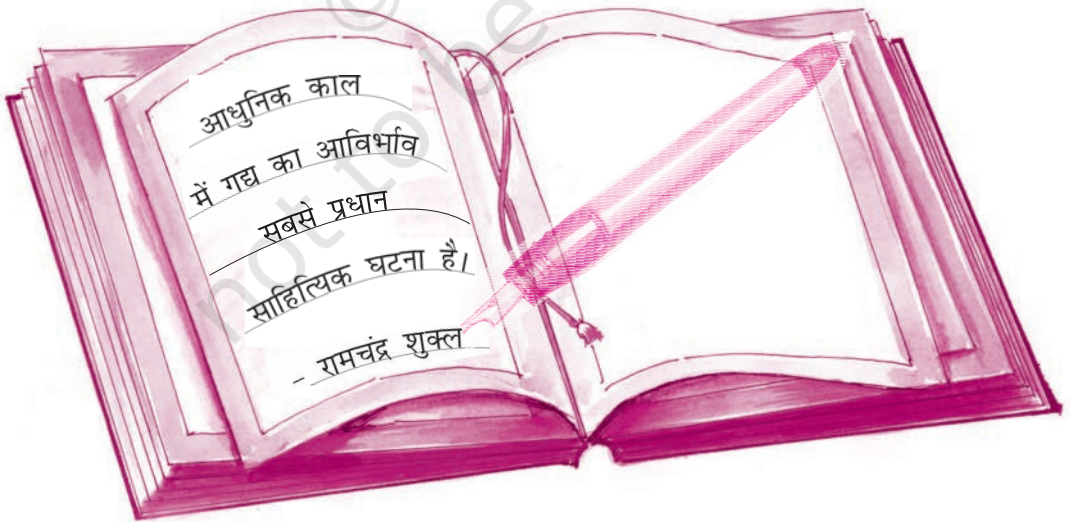 आधुनिक काल
में गद्य का आविर्भाव
सबसे प्रधान
साहित्यिक घटना है।
- रामचंद्र शुक्ल
not to be
©